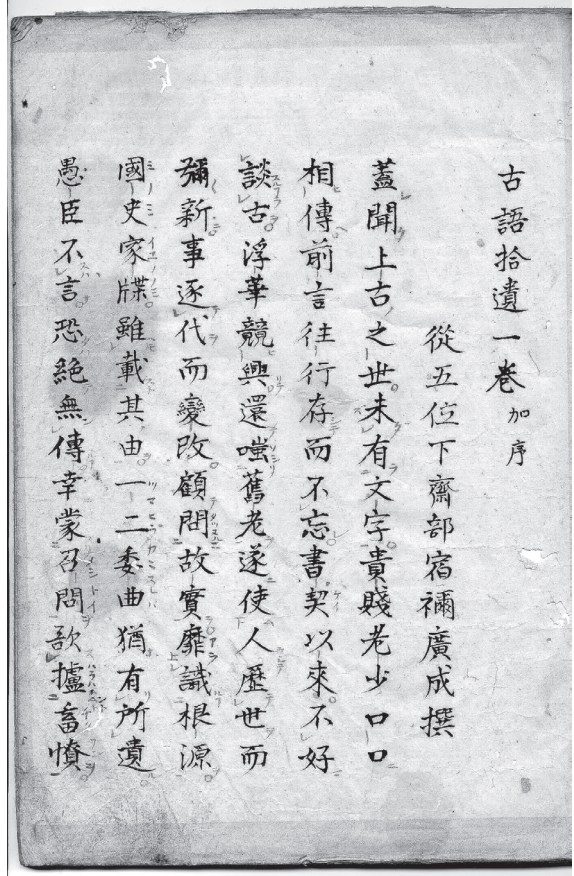 古語拾遺一卷加序
從五位下齋部宿禰廣成撰
蓋聞上古之世未有文字貴賤老少口口
相傳前言往行存而不忘書契以來不好
談古浮華競興還嗤舊老遂使人歷世而
彌新事逐代而變改顧問故實靡識根源
國史家牒雖載其由一二委曲猶有所遺
愚臣不言恐絕無傳幸蒙召問欲攄畜憤